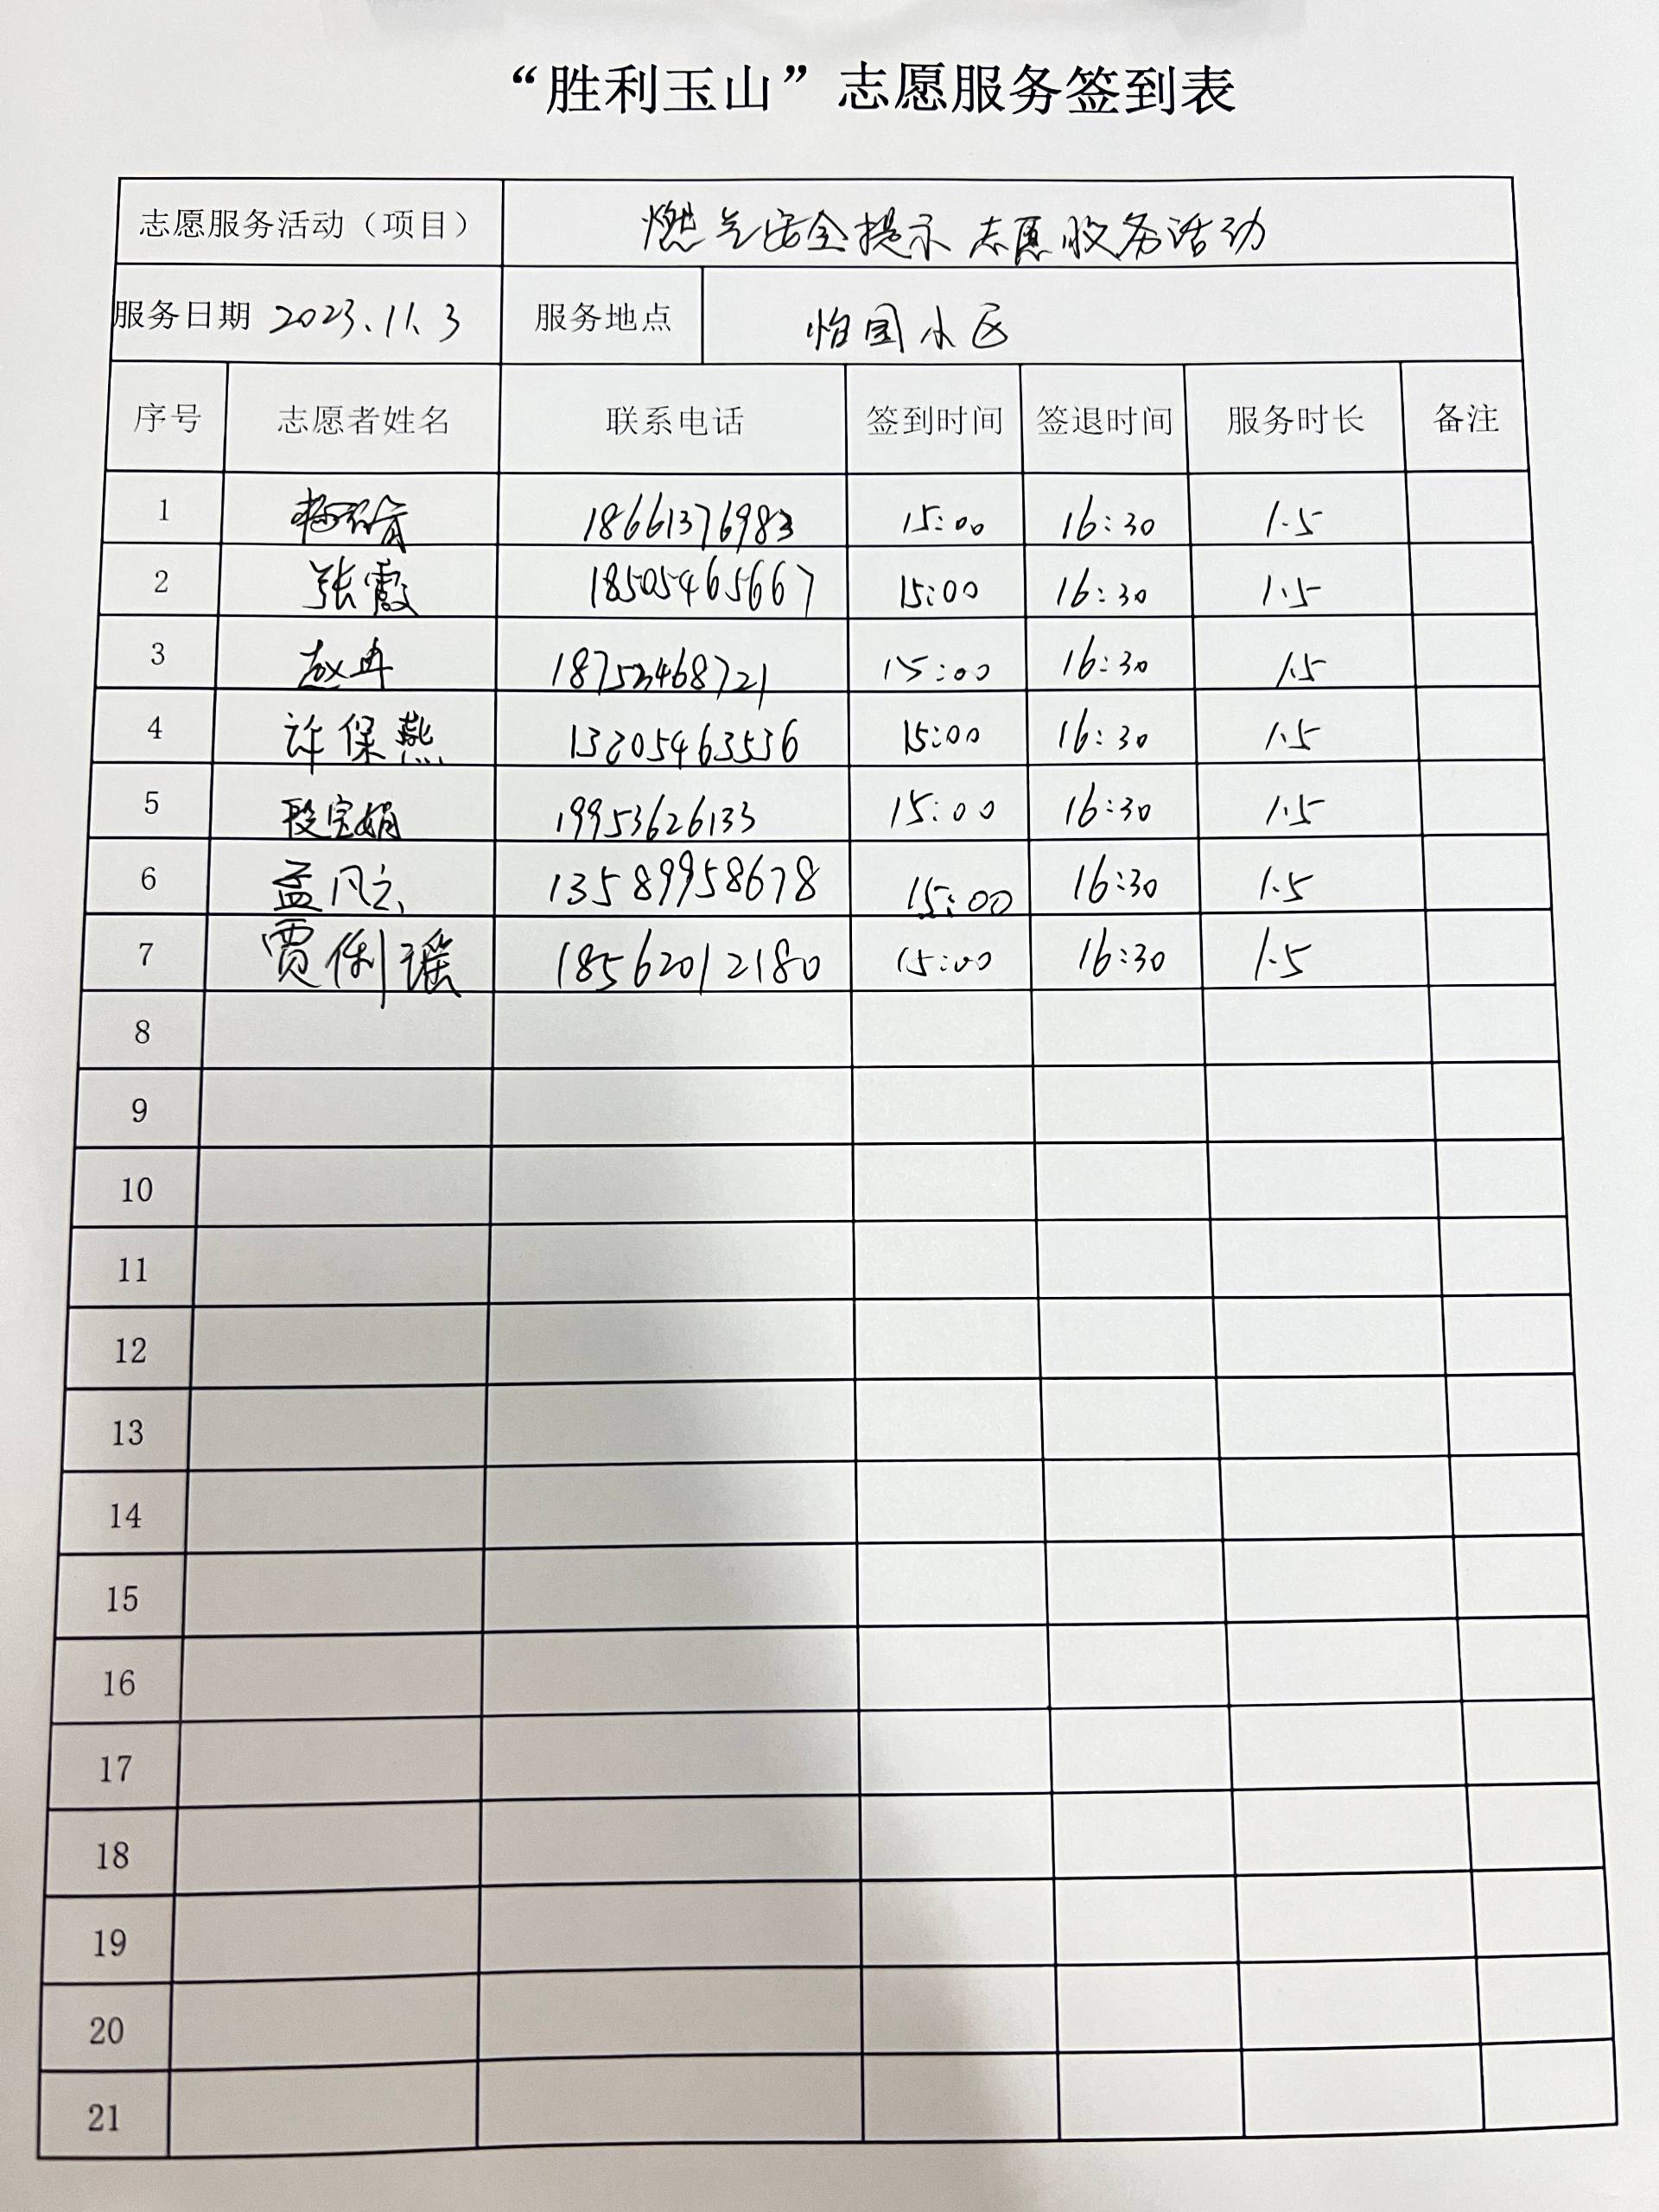 “胜利玉山”志愿服务签到表
志愿服务活动（项目） 燃气安全提示志愿服务活动
服务日期 2023.11.3 服务地点 怡园小区
序号 志愿者姓名 联系电话 签到时间 签退时间 服务时长 备注
1 18661376983 15:00 16:30 1.5
2 张霞 18505465667 15:00 16:30 1.5
3 赵冉 15:00 16:30 1.5
4 许保燕 13205463536 15:00 16:30 1.5
5 段宝娟 19953626133 15:00 16:30 1.5
6 孟凡立 13589958678 15:00 16:30 1.5
7 贾俐瑶 18562012180 15:00 16:30 1.5
8
9
10
11
12
13
14
15
16
17
18
19
20
21